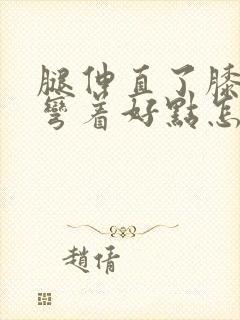 腿伸直了膝
彎着好點怎
趙倩